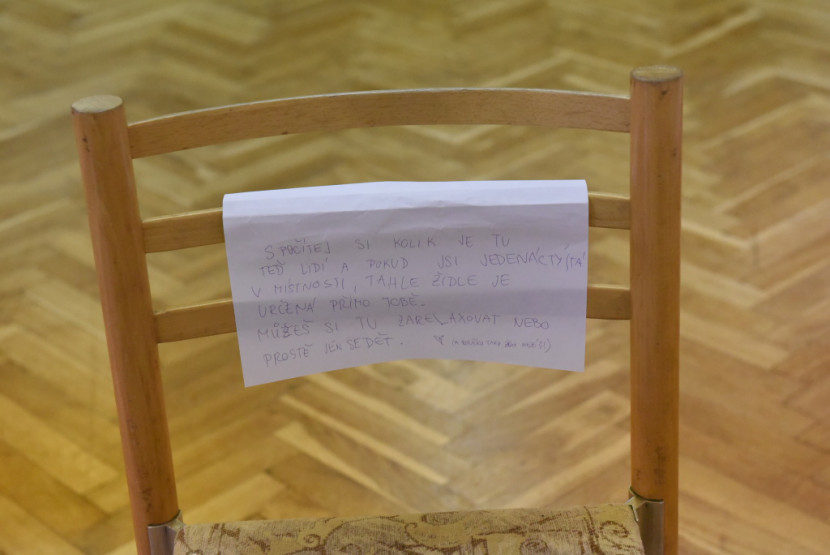 SPOČÍTEJ SI KOLIK JE TU
TEĎ LIDÍ A POKUD JSI JEDENÁCTÝ/TÁ
V MÍSTNOSTI, TAHLE ŽIDLE JE
URČENÁ PŘÍMO TOBĚ.
MŮŽEŠ SI TU ZARELAXOVAT NEBO
PROSTĚ JEN SEDĚT.